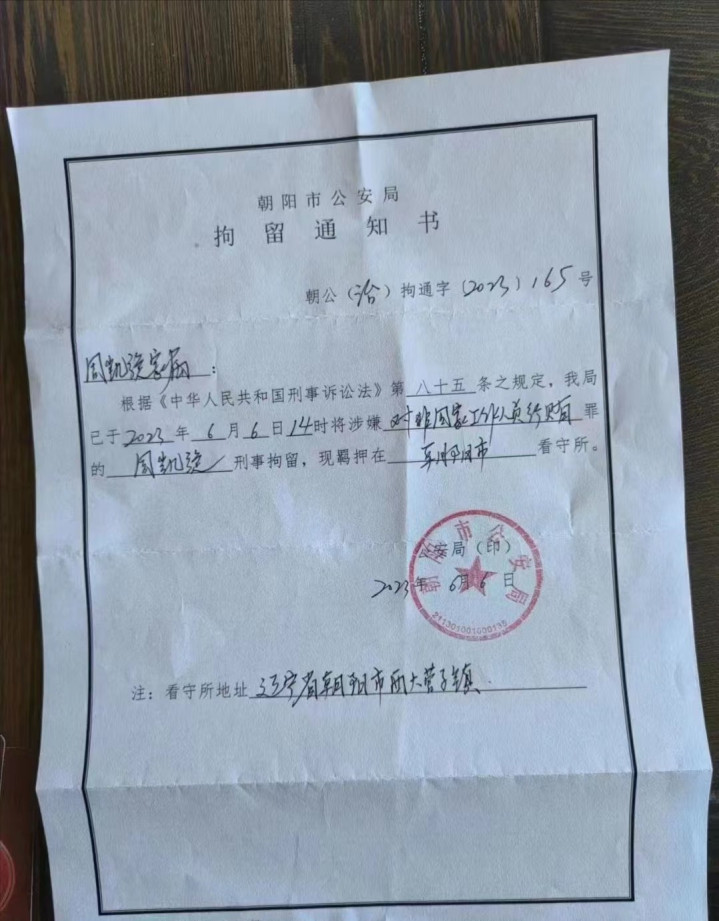 朝阳市公安局
拘留通知书
朝公(治)拘通字(2023)165号
周凯旋家属:
根据《中华人民共和国刑事诉讼法》第八十五条之规定,我局
已于2023年6月6日14时将涉嫌对非国家工作人员行贿罪
的周凯旋刑事拘留,现羁押在朝阳市看守所。
安局(印)
2023年6月6日
朝阳市公安局
注:看守所地址辽宁省朝阳市西大营子镇.